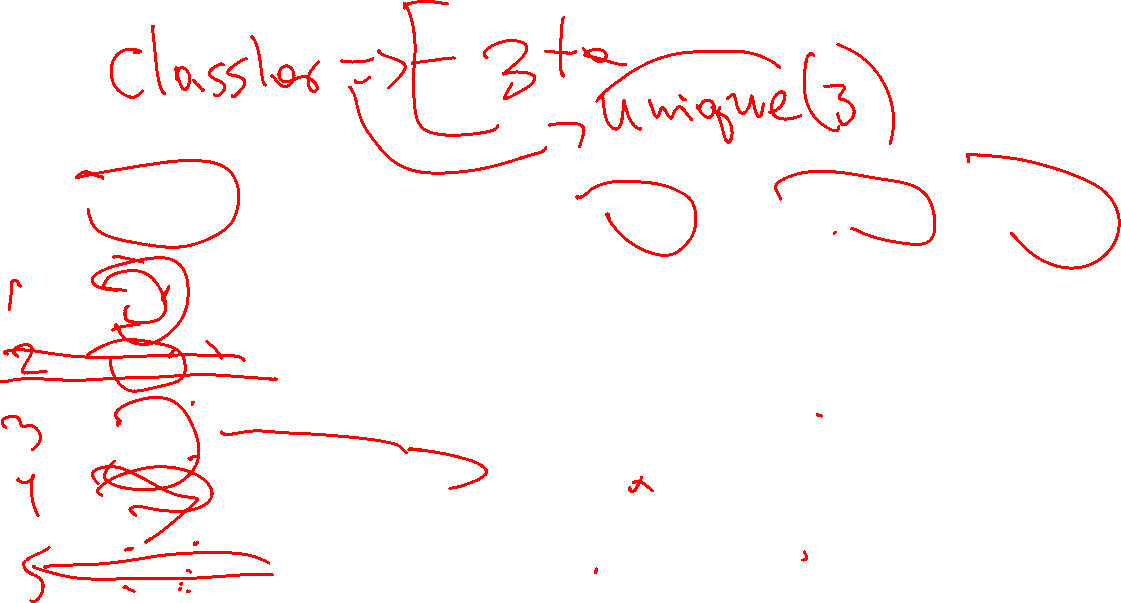 Classlos => [ 3 to
unique(3)
1
2
3
4
5